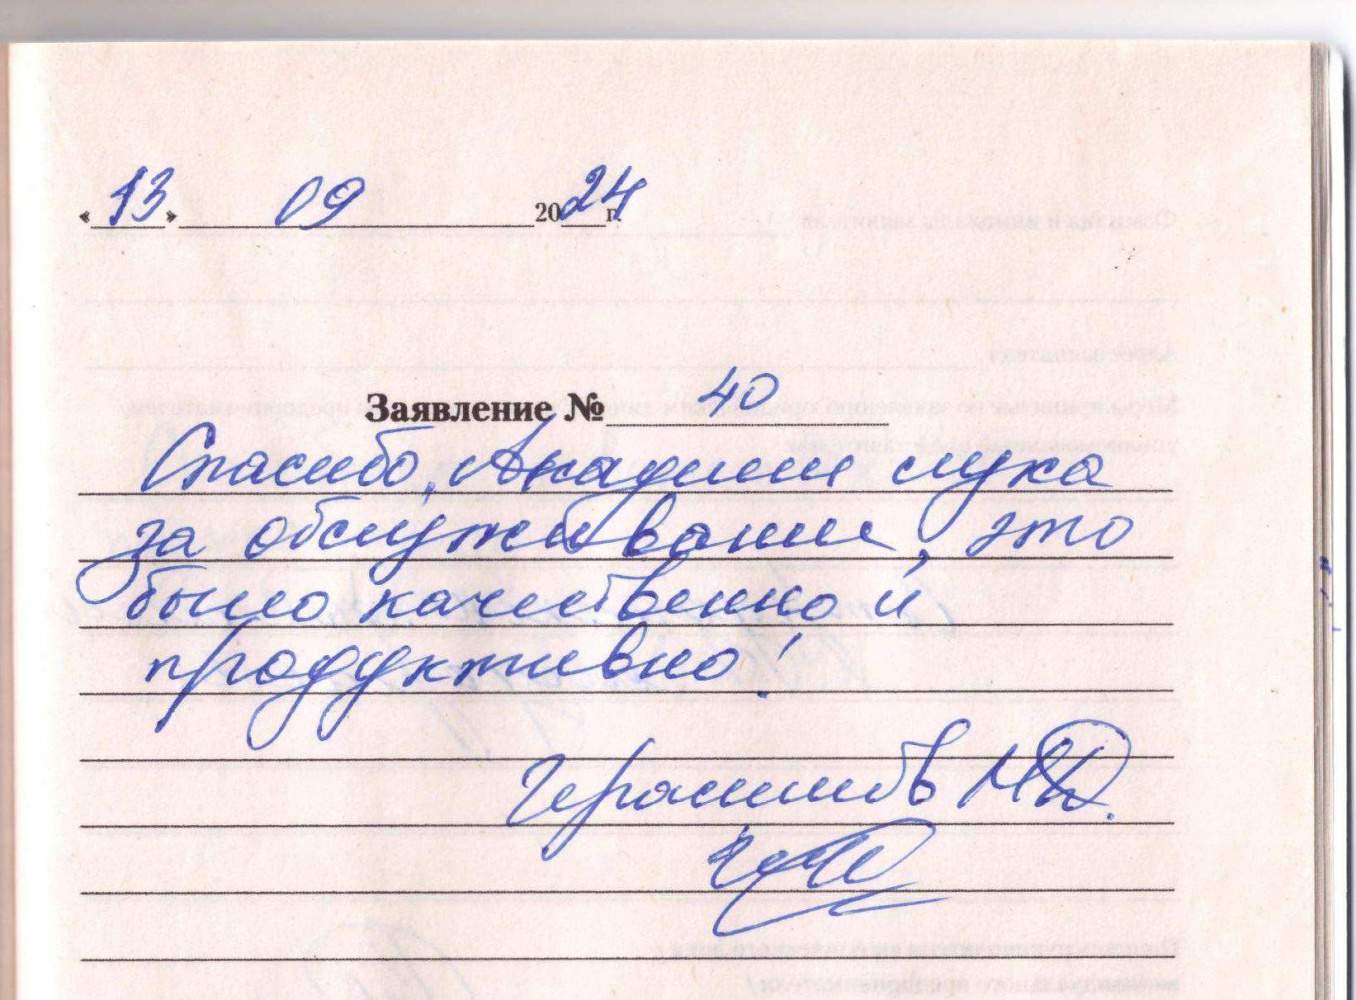 «13» 09 2024г.
Заявление № 40
Спасибо, Академии слуха
за обслуживание, это
было качественно и
продуктивно!
Герасимов М.